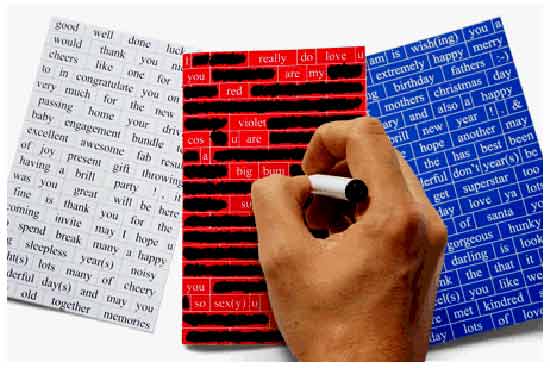 good well done luck
would thank you
cheers like one for
to in congratulate you on
very much for the new
passing home your
baby engagement bundle
excellent awesome fab
of joy present gift throwing
having a brill party ! ,
was you great will be here
fine is thank you for the
coming invite may I hope
spend break many a happy
sleepless year(s) noisy
lots many of cheery
day(s) and may you
old together memories
I really do love u
you are my
red
violet
cos u are
a
big bum
you
so sex(y) u
am is wish(ing) you a
extremely happy merry
birthday fathers :-)
mothers christmas day
and also a happy
new year ! &
hope another may
the has best been
don't year(s) be
get superstar too
love ya lots
of santa
gorgeous hunky
darling is
the that it
you like
met kindred
day lots of